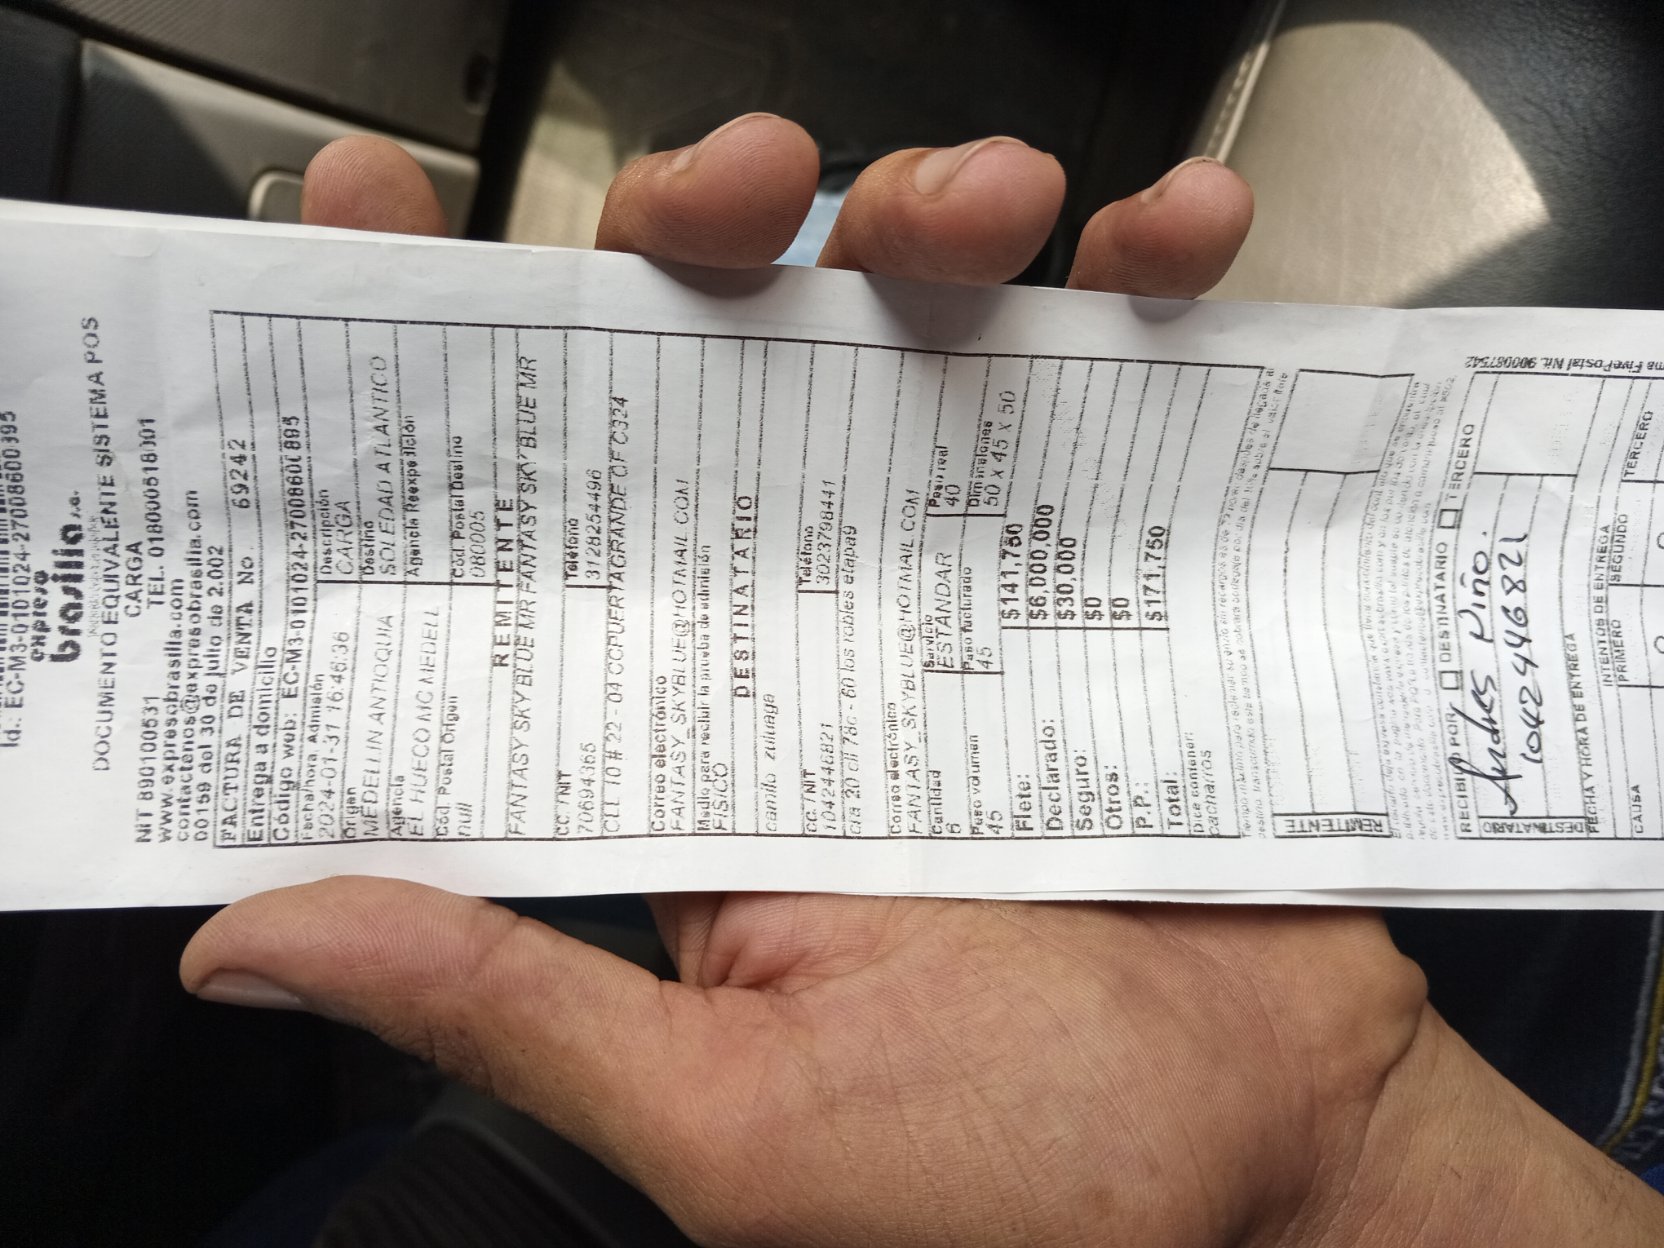 Id.: EC-M3-0101024-2700860
expreso
brasilia s.a.
DOCUMENTO EQUIVALENTE SISTEMA POS
CARGA
NIT 890100531 TEL. 018000518001
www.expresobrasilia.com
contactenos@expresobrasilia.com
00159 del 30 de julio de 2.002
FACTURA DE VENTA No. 69242
Entrega a domicilio
Código web: EC-M3-0101024-2700860
Fecha/hora Admisión Descripción
2024-01-31 16:46:36 CARGA
Origen Destino
MEDELLIN ANTIOQUIA SOLEDAD ATLANTICO
Agencia Agencia Reexpedición
EL HUECO MC MEDELL
Cód. Postal Origen Cód. Postal Destino
null 080005
REMITENTE
FANTASY SKY BLUE MR FANTASY SKY BLUE MR
CC. / NIT Teléfono
70694365 3128254496
CLL 10 # 22 - 04 CCPUERTAGRANDE OF C324
Correo electrónico
FANTASY_SKYBLUE@HOTMAIL.COM
Medio para recibir la prueba de admisión
FISICO
DESTINATARIO
camilo zuluaga
CC. / NIT Teléfono
1042446821 3023798441
cra 20 cll 78c - 60 los robles etapa9
Correo electrónico
FANTASY_SKYBLUE@HOTMAIL.COM
Cantidad Servicio Peso real
ESTANDAR 40
Peso volumen Peso facturado Dimensiones
45 45 50 x 45 x 50
Flete: $141,750
Declarado: $6,000,000
Seguro: $30,000
Otros: $0
P.P.: $0
Total: $171,750
Dice contener:
cacharros
REMITENTE
RECIBIDO POR: DESTINATARIO TERCERO
Andres Piño.
1042446821
DESTINATARIO
FECHA Y HORA DE ENTREGA
INTENTOS DE ENTREGA
CAUSA PRIMERO SEGUNDO TERCERO
Postal Nit. 900087542